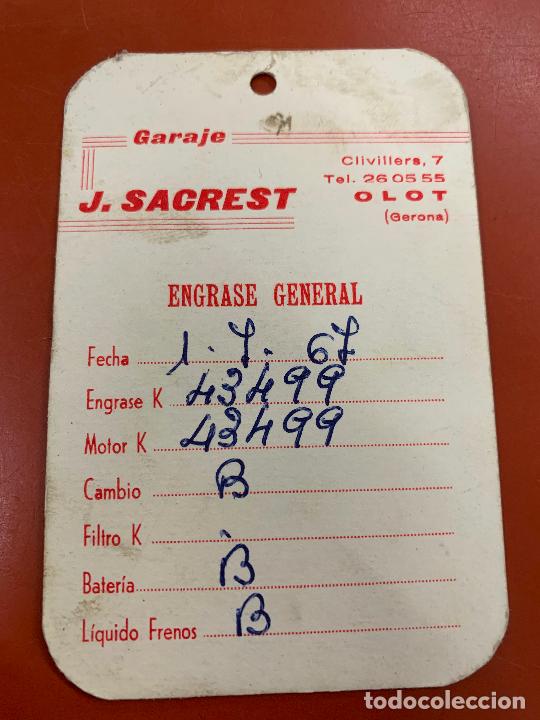 Garaje
J. SACREST
Clivillers, 7
Tel. 26 05 55
OLOT
(Gerona)
ENGRASE GENERAL
Fecha 1. 7. 67
Engrase K 43499
Motor K 43499
Cambio B
Filtro K
Batería B
Líquido Frenos B
todocoleccion
todocoleccion.net